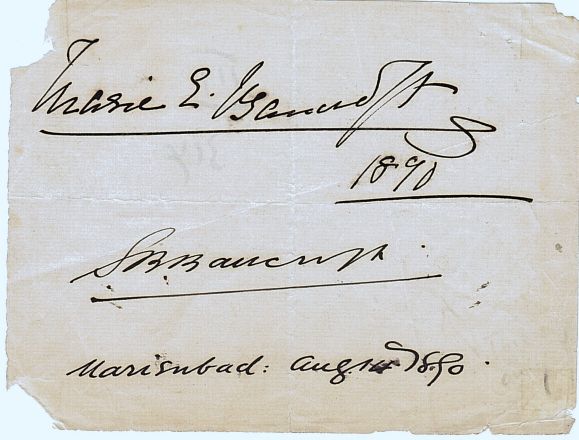 Marie E. Bancroft
1890
S B Bancroft.
Marienbad: Aug. 14 1890.